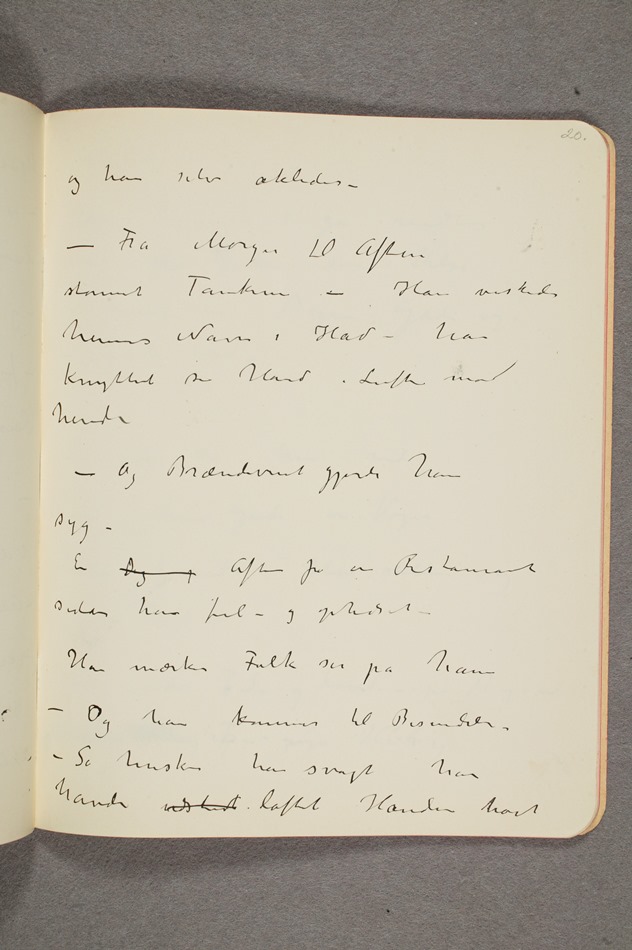 20.
og han selv ækledes –
– Fra Morgen til Aften
stormet Tankerne – Han veskede
hennes Navn i Had – han
knyttet sin Hånd i Luften mod
hende
– Og Brændevinet gjorde ham
syg –
En Dag Aften på en Restaurant
sidder han fuld – og ophidset –
Han mærker Folk ser på ham
– Og han kommer til Besindelse –
– Så husker han svagt han
havde løftet Hånden højt